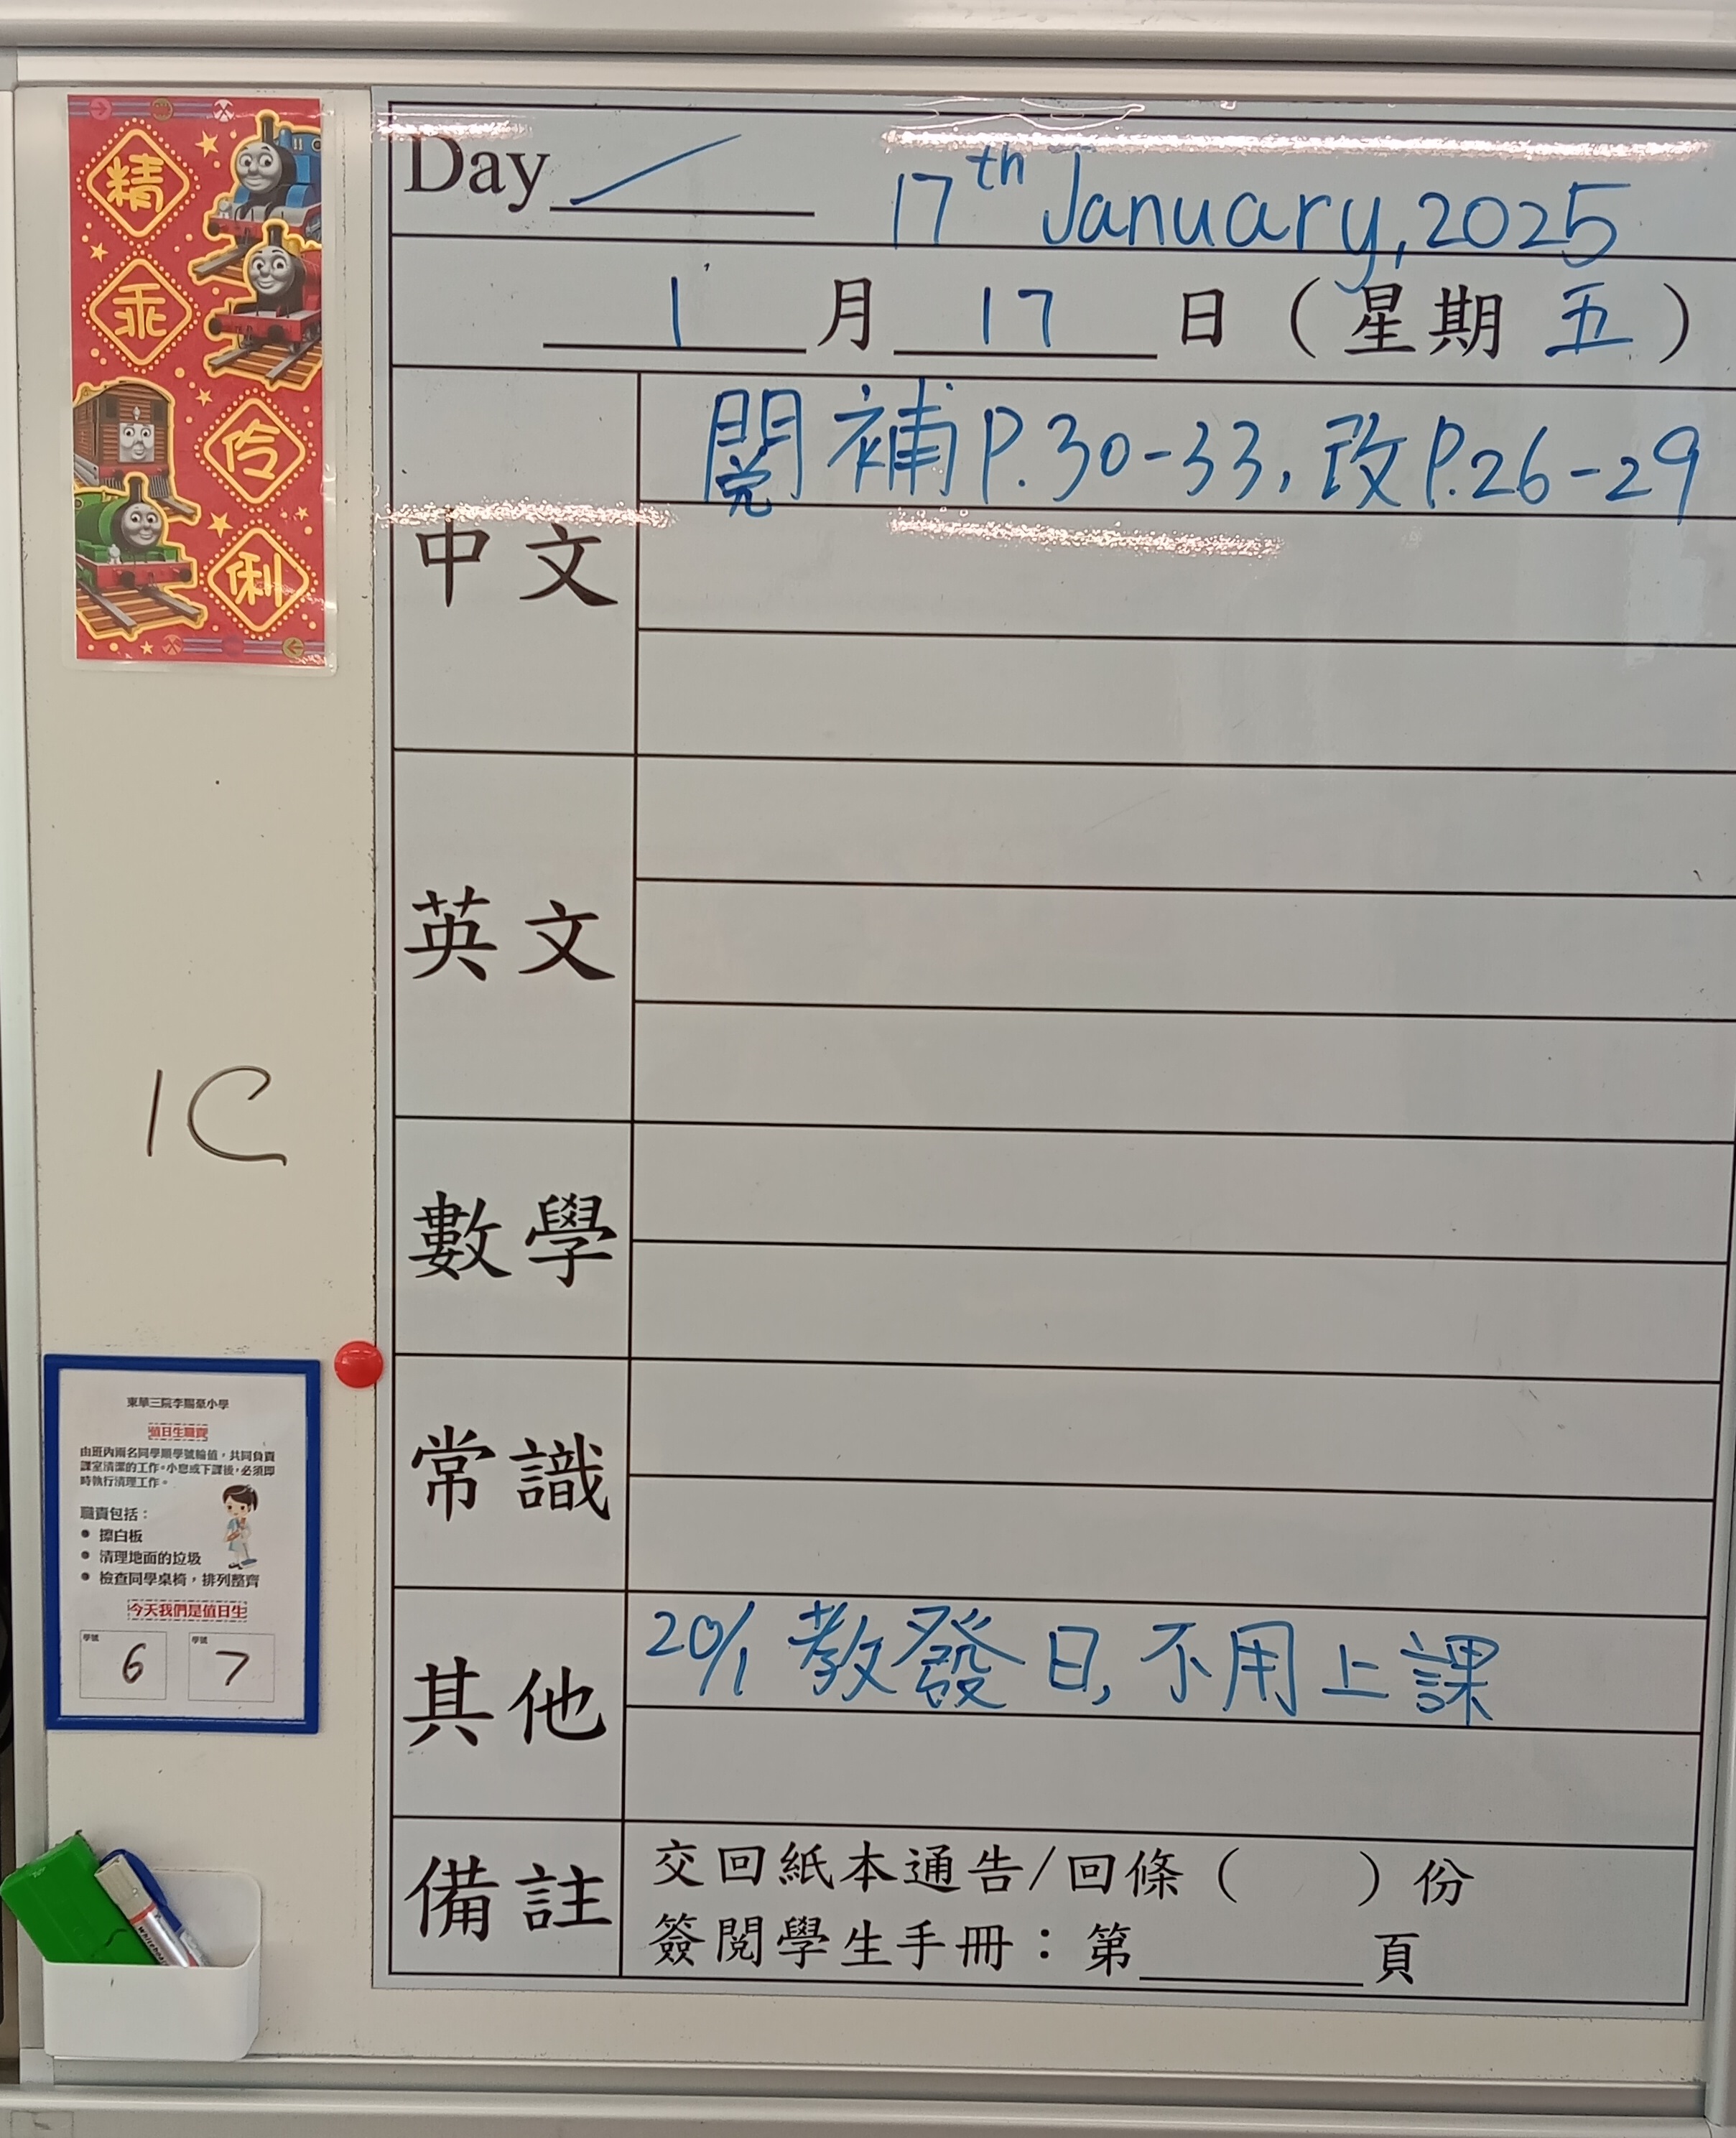 精
乖
伶
俐
Day
17th January, 2025
1月17日(星期五)
中文
閱補P.30-33, 改P.26-29
英文
數學
常識
其他
20/1 教發日, 不用上課
備註
交回紙本通告/回條( )份
簽閱學生手冊:第______頁
1C
東華三院李賜豪小學
值日生職責
由班內兩名同學順學號輪值,共同負責
課室清潔的工作。小息或下課後,必須即
時執行清理工作。
職責包括:
● 擦白板
● 清理地面的垃圾
● 檢查同學桌椅,排列整齊
今天我們是值日生
學號 6 學號 7